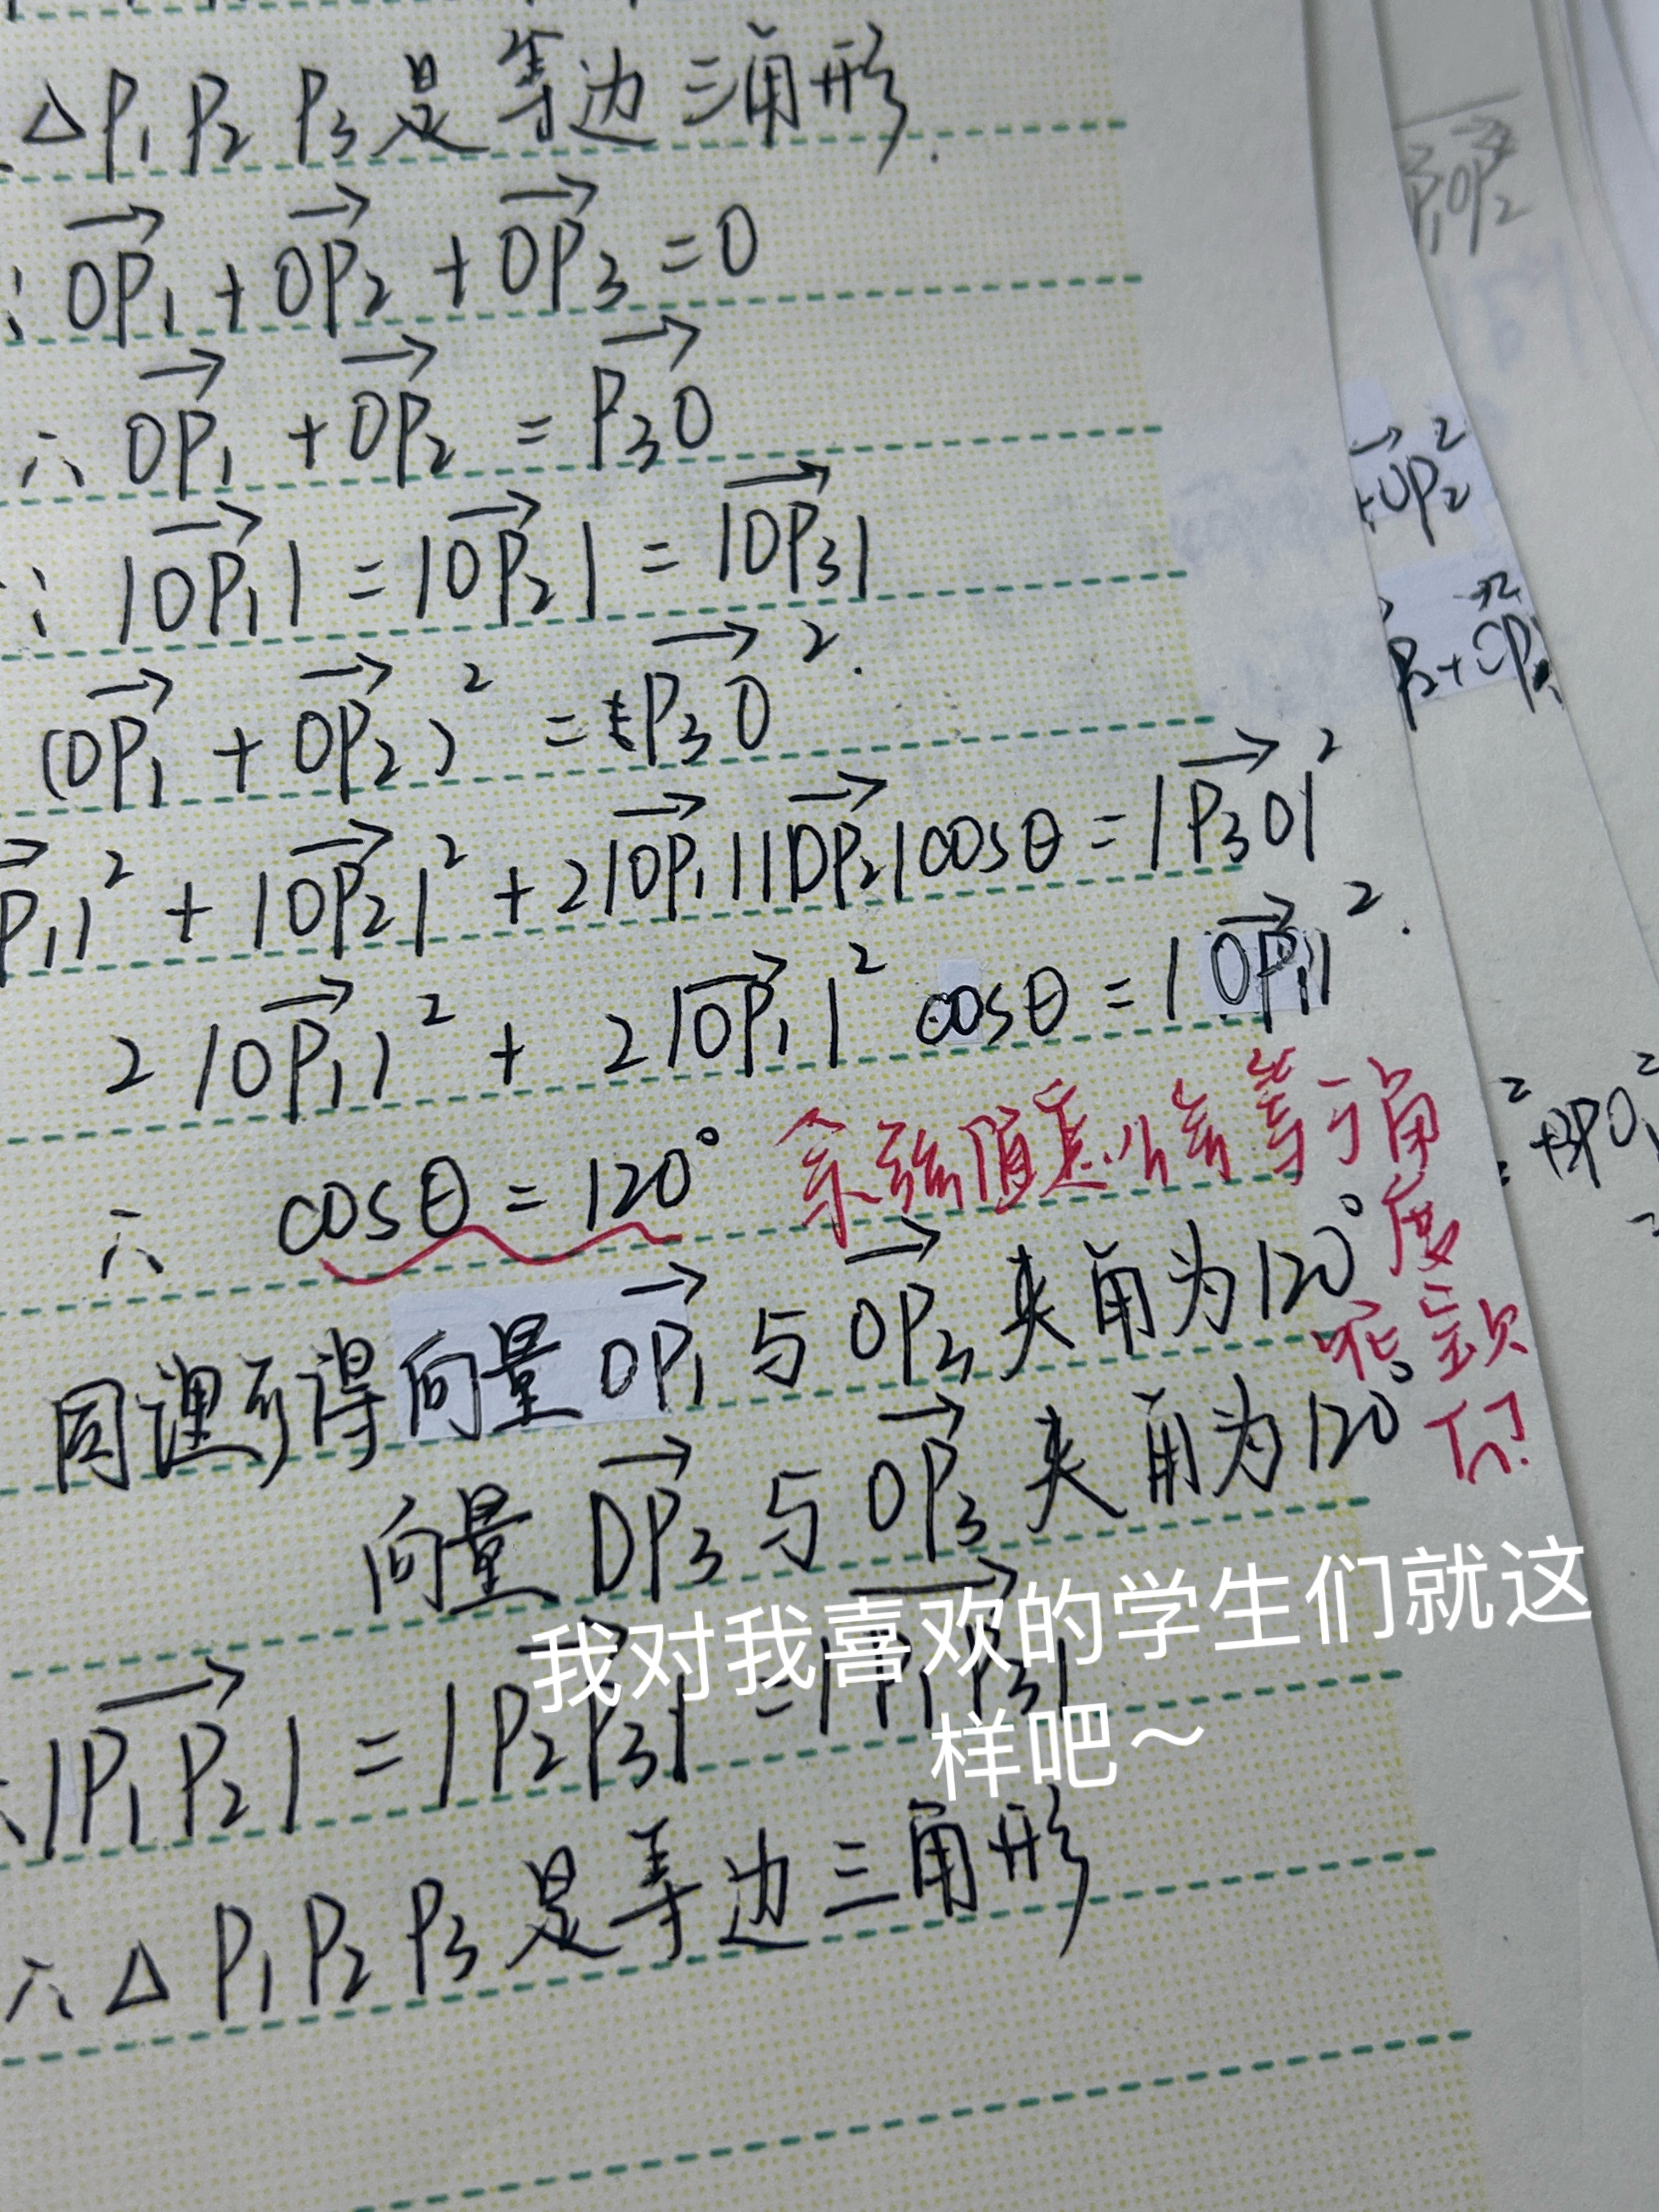 △P₁P₂P₃是等边三角形.
∵ OP₁+OP₂+OP₃=0
∴ OP₁+OP₂=P₃O
∵ |OP₁|=|OP₂|=|OP₃|
(OP₁+OP₂)²=P₃O².
P₁|²+|OP₂|²+2|OP₁||OP₂|cosθ=|P₃O|²
2|OP₁|²+2|OP₁|²cosθ=|OP₁|².
∴ cosθ=120°
余弦值怎么能等于角
度
呢
们!
同理可得向量OP₁与OP₃夹角为120°
向量OP₃与OP₃夹角为120°
∴|P₁P₂|=|P₂P₃|=|P₁P₃|
∴△P₁P₂P₃是等边三角形
我对我喜欢的学生们就这
样吧~
P₁OP₂
+OP₂²
P₂+OP